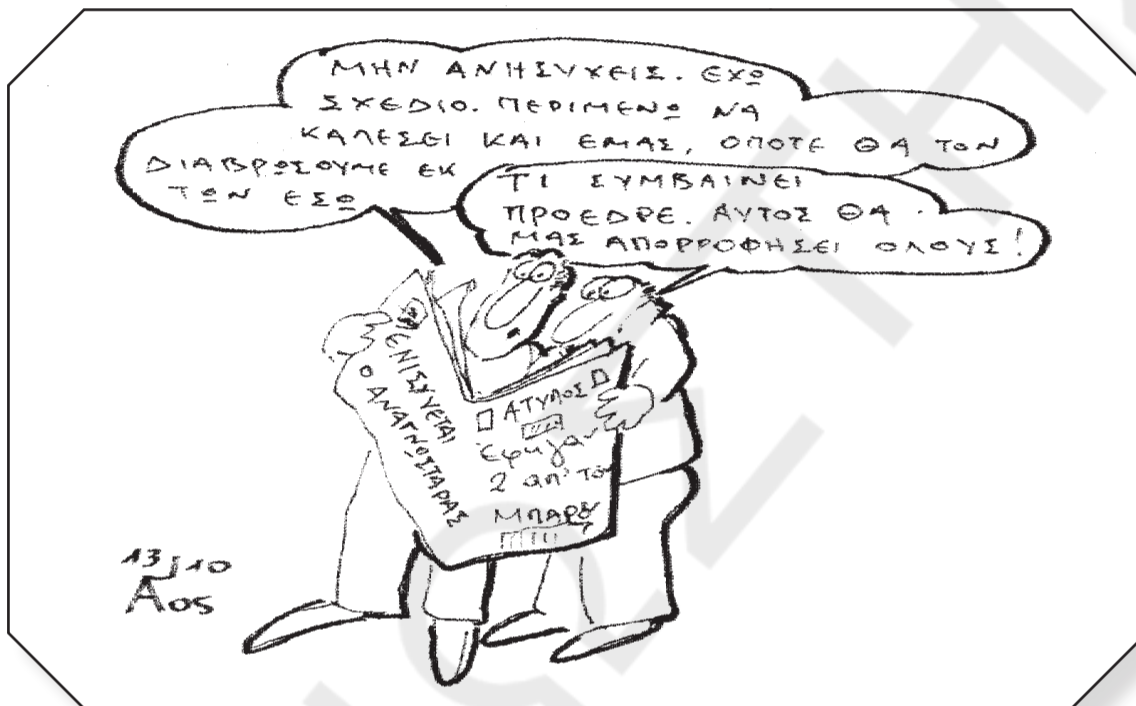 ΜΗΝ ΑΝΗΣΥΧΕΙΣ. ΕΧΩ
ΣΧΕΔΙΟ. ΠΕΡΙΜΕΝΩ ΝΑ
ΚΑΛΕΣΕΙ ΚΑΙ ΕΜΑΣ, ΟΠΟΤΕ ΘΑ ΤΟΝ
ΔΙΑΒΡΩΣΟΥΜΕ ΕΚ
ΤΩΝ ΕΣΩ
ΤΙ ΣΥΜΒΑΙΝΕΙ
ΠΡΟΕΔΡΕ. ΑΥΤΟΣ ΘΑ
ΜΑΣ ΑΠΟΡΡΟΦΗΣΕΙ ΟΛΟΥΣ!
ΕΝΙΣΥΕΤΑΙ
Ο ΑΝΑΓΝΩΣΤΑΡΑΣ
ΑΤΥΠΟΣ
Εφυγαν
2 απ' το
13/10
Λος